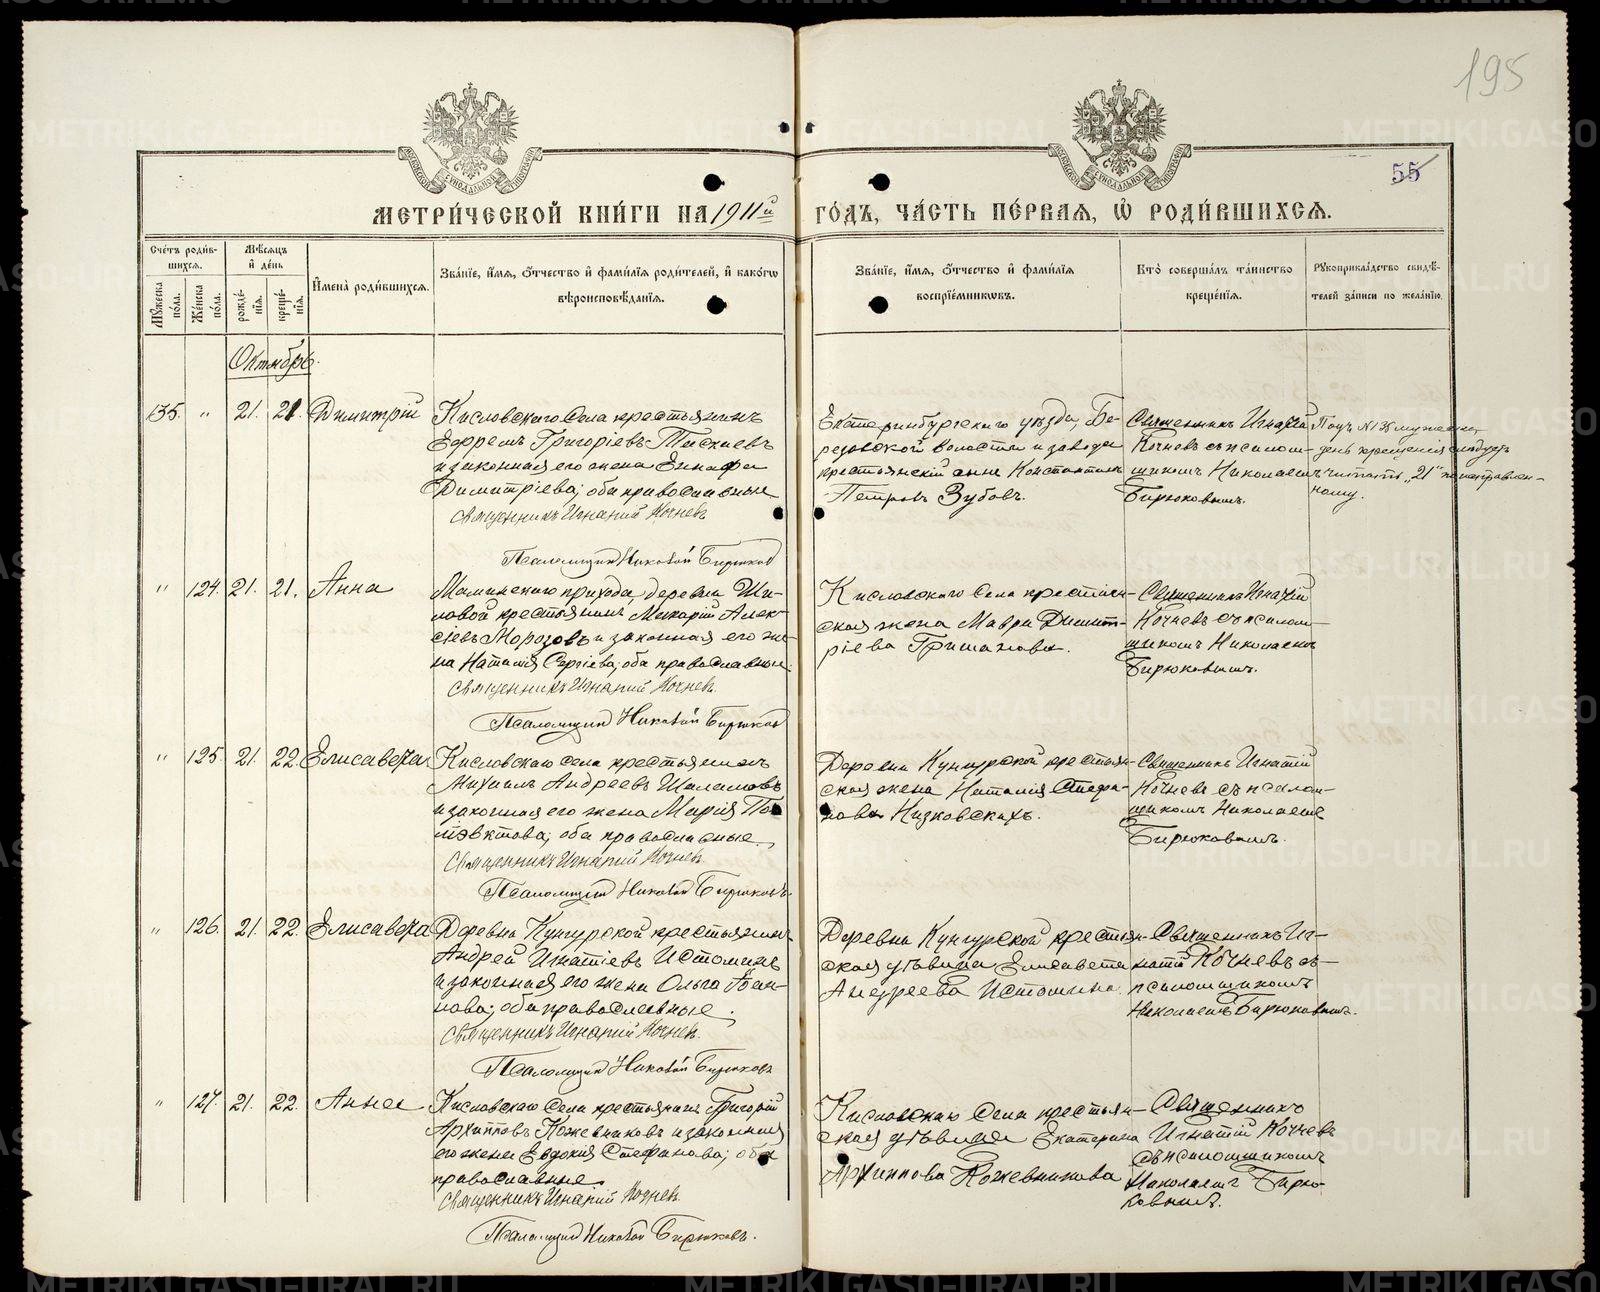 195
55
МЕТРИ́ЧЕСКОЙ КНИ́ГИ НА 1911й ГО́ДЪ, ЧА́СТЬ ПЕ́РВАЯ, Ѡ РОДИ́ВШИХСЯ.
Сче́тъ роди́в-
шихся.
Мѣ́сяцъ
и де́нь
Мꙋ́жеска
по́ла.
Же́нска
по́ла.
рожде́-
нїя.
креще́-
нїя.
И҆мена̀ роди́вшихся.
Зва́нїе, и҆́мя, ѻ҆́тчество и҆ фами́лїя роди́телей, и҆ како́гѡ
вѣроисповѣ́данїя.
Зва́нїе, и҆́мя, ѻ҆́тчество и҆ фами́лїя
воспрїе́мникѡвъ.
Кто̀ соверша́лъ та́инство
креще́нїя.
Рꙋкоприкла́дство свидѣ́-
телей за́писи по жела́нїю.
Октябрь.
135. " 21. 21. Димитрій
Кисловскаго Села крестьянинъ
Ефремъ Григоріевъ
и законная его жена
Димитріева; оба православные
Священникъ Игнатій Кочневъ
Псаломщик Николай Бирюков
Екатеринбургскаго уѣзда, Бе-
резовской волости и завода
крестьянскій сынъ Константинъ
Петровъ Зубовъ.
Священникъ Игнатій
Кочневъ съ псалом-
щикомъ Николаемъ
Бирюковымъ.
Под № 135 мужеска,
день крещенія слѣдуетъ
читать „21" по исправлен-
ному.
" 124. 21. 21. Анна
Маминскаго прихода, деревни Ши-
ловой крестьянинъ Макарій Алек-
сѣевъ Морозовъ и законная его же-
на Наталія Сергіева; оба православные.
Священникъ Игнатій Кочневъ.
Псаломщик Николай Бирюков
Кисловскаго Села крестьян-
ская жена Мавра Димит-
ріева
Священникъ Игнатій
Кочневъ съ псалом-
щикомъ Николаемъ
Бирюковымъ.
" 125. 21. 22. Елисавета
Кисловскаго Села крестьянинъ
Михаилъ Андреевъ Шаламовъ
и законная его жена Марія По-
ліэвктова; оба православные.
Священникъ Игнатій Кочнев
Псаломщик Николай Бирюковъ.
Деревни Кунгурской крестьян-
ская жена Наталія Стефа-
нова Низковскихъ.
Священникъ Игнатій
Кочневъ съ псалом-
щикомъ Николаемъ
Бирюковымъ.
" 126. 21. 22. Елисавета
Деревни Кунгурской крестьянинъ
Андрей Игнатіевъ Истоминъ
и законная его жена Ольга Іоан-
нова; оба православные.
Священникъ Игнатій Кочнев.
Псаломщик Николай Бирюковъ
Деревни Кунгурской крестьян-
ская дѣвица Елисавета
Андреева Истомина.
Священникъ Иг-
натій Кочневъ съ
псаломщикомъ
Николаемъ Бирюковымъ.
" 127. 21. 22. Анна
Кисловскаго Села крестьянинъ Григорій
Архипповъ Кожевниковъ и законная
его жена Евдокія Стефанова; оба
православные.
Священникъ Игнатій Кочнев.
Псаломщик Николай Бирюковъ.
Кисловскаго Села крестьян-
ская дѣвица Екатерина
Архиппова Кожевникова
Священникъ
Игнатій Кочневъ
съ псаломщикомъ
Николаемъ Бирю-
ковымъ.
METRIKI.GASO-URAL.RU